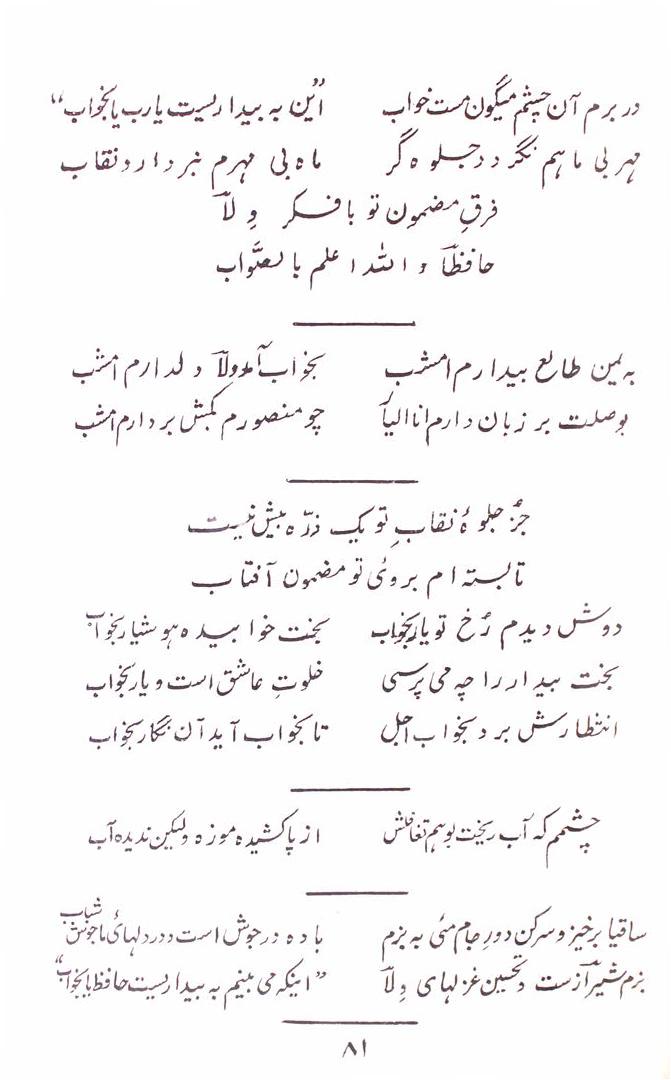 در برم آن چشم میگون مست خواب "این به بیداریست یارب یا بخواب"
مهر بی ما هم نگر در جلوه گر ماه بی مهرم نبر دارد نقاب
فرقِ مضمون تو با فکر وِلّا
حافظا واللہ اعلم بالصَّواب
به یمن طالع بیدارم امشب بخواب آمد ولّا دلدارم امشب
بوصلت بر زبان دارم انا الیار چو منصورم مکش بر دارم امشب
جُز جلوهٔ نقابِ تو یک ذرّه بیش نیست
تا بسته ام بروئی تو مضمون آفتاب
دوش دیدم رُخ تو یار بخواب بخت خوابیده هوشیار بخواب
بخت بیدار را چه می پرسی خلوتِ عاشق است و یار بخواب
انتظارش برد بخواب اجل تا بخواب آید آن نگار بخواب
چشمم که آب ریخت بوهم تغافلش از پا کشیده موزه ولیکن ندیده آب
ساقیا برخیز و سرکن دورِ جام مئی به بزم باده در جوش است و در دلهائ ما جوش شباب
بزم شیراز ست و تحسین غزلهای وِلّا "اینکه می بینم به بیداریست حافظ یا بخواب"
۸۱